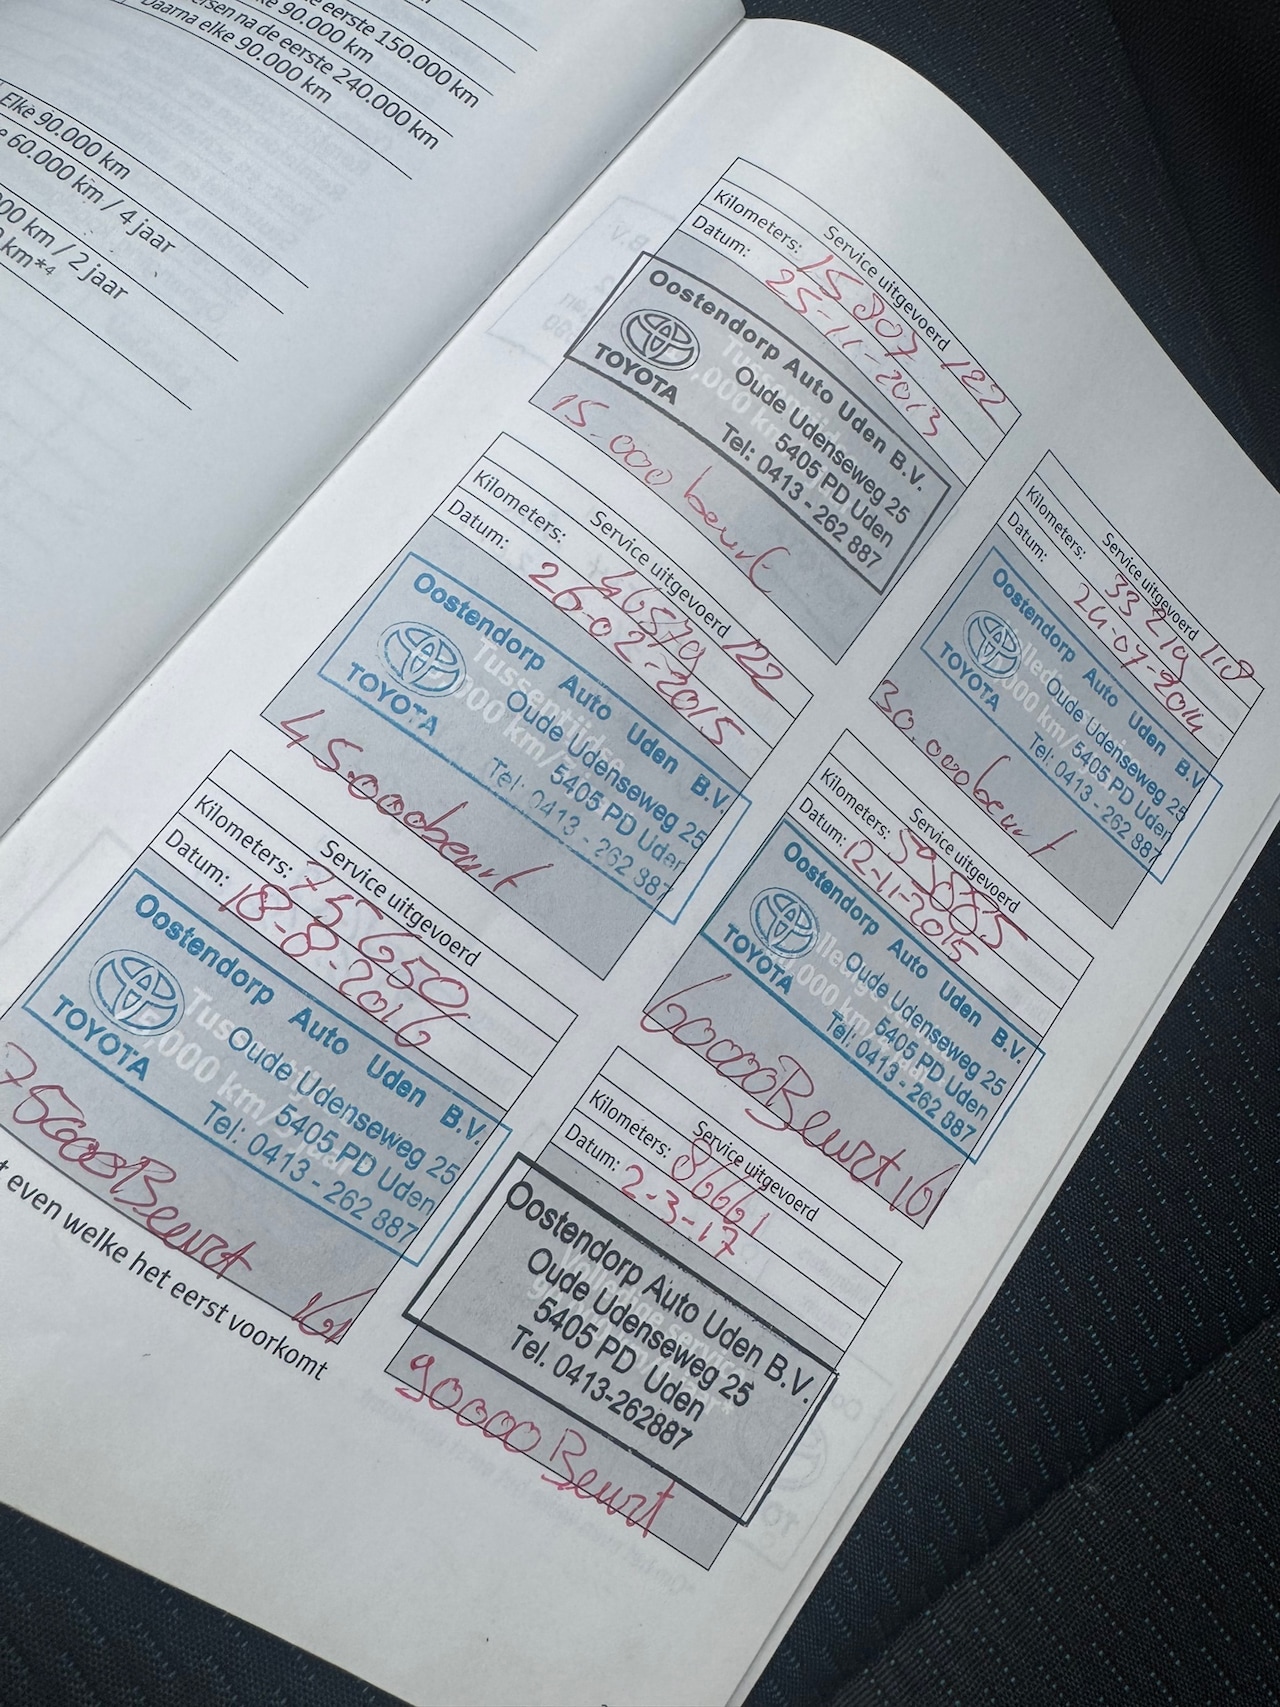 e eerste 150.000 km
ke 90.000 km
ersen na de eerste 240.000 km
Daarna elke 90.000 km
Elke 90.000 km
e 60.000 km / 4 jaar
000 km / 2 jaar
km*4
Service uitgevoerd
Kilometers: 15207 122
Datum: 25-11-2013
Oostendorp Auto Uden B.V.
Oude Udenseweg 25
5405 PD Uden
Tel: 0413 - 262 887
TOYOTA
15.000 beurt
Service uitgevoerd
Kilometers: 33219 118
Datum: 24-07-2014
Oostendorp Auto Uden B.V.
Oude Udenseweg 25
5405 PD Uden
Tel: 0413 - 262 887
TOYOTA
30.000beurt
Service uitgevoerd
Kilometers: 46579 122
Datum: 26-02-2015
Oostendorp Auto Uden B.V.
Oude Udenseweg 25
5405 PD Uden
Tel: 0413 - 262 887
TOYOTA
45.000beurt
Service uitgevoerd
Kilometers: 59885
Datum: 12-11-2015
Oostendorp Auto Uden B.V.
Oude Udenseweg 25
5405 PD Uden
Tel: 0413 - 262 887
TOYOTA
60000 Beurt
Service uitgevoerd
Kilometers: 75650
Datum: 18-8-2016
Oostendorp Auto Uden B.V.
Oude Udenseweg 25
5405 PD Uden
Tel: 0413 - 262 887
TOYOTA
75000 Beurt
Service uitgevoerd
Kilometers: 86661
Datum: 2-3-17
Oostendorp Auto Uden B.V.
Oude Udenseweg 25
5405 PD Uden
Tel. 0413-262887
90000 Beurt
t even welke het eerst voorkomt